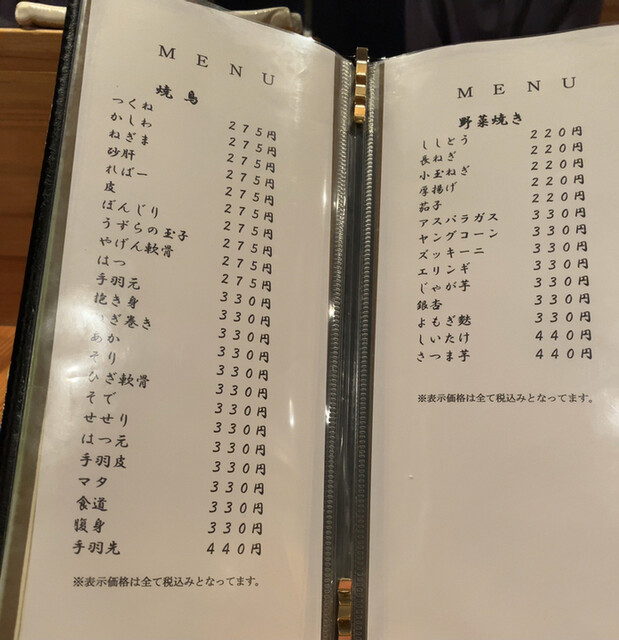 MENU
焼鳥
つくね 275円
かしわ 275円
ねぎま 275円
砂肝 275円
ればー 275円
皮 275円
ぼんじり 275円
うずらの玉子 275円
やげん軟骨 275円
はつ 275円
手羽元 330円
抱き身 330円
ぎ巻き 330円
あか 330円
そり 330円
ひざ軟骨 330円
そで 330円
せせり 330円
はつ元 330円
手羽皮 330円
マタ 330円
食道 330円
腹身 330円
手羽先 440円
※表示価格は全て税込みとなってます。
MENU
野菜焼き
ししとう 220円
長ねぎ 220円
小玉ねぎ 220円
厚揚げ 220円
茄子 220円
アスパラガス 330円
ヤングコーン 330円
ズッキーニ 330円
エリンギ 330円
じゃが芋 330円
銀杏 330円
よもぎ麩 330円
しいたけ 440円
さつま芋 440円
※表示価格は全て税込みとなってます。